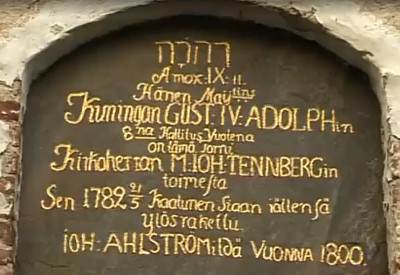 יהוה
Amox: IX: 11.
Hänen May:tins
Kuningan GUST: IV: ADOLPHin
8:na Hallitus Vuotena
on tämä torni
Kirkoherran M: IOH: TENNBERGin
toimesta
Sen 1782 21/5 Kaatunen Siaan jällensä
ylösrakettu
IOH: AHLSTRÖM:ildä VUONNA 1800.